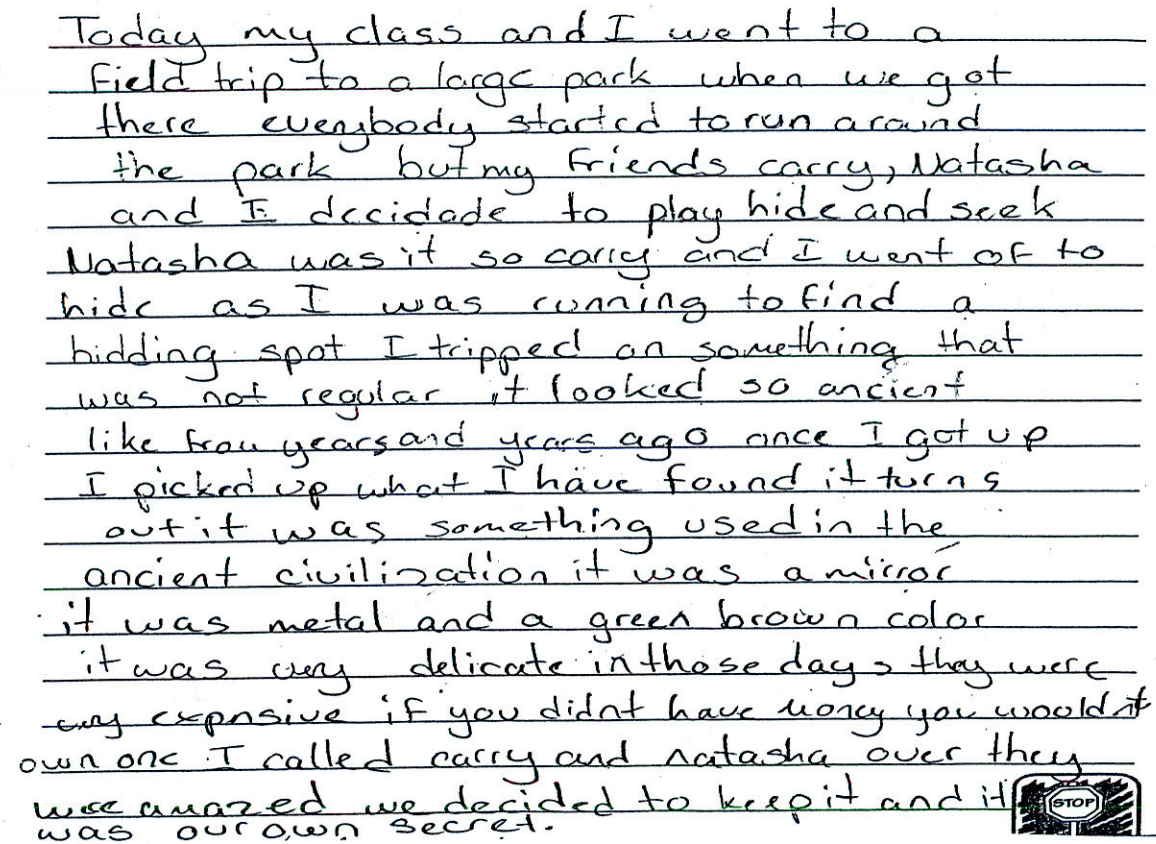 Today my class and I went to a
field trip to a large park when we got
there everybody started to run around
the park but my friends carry, Natasha
and I decidade to play hide and seek
Natasha was it so carry and I went of to
hide as I was running to find a
hidding spot I tripped on something that
was not regular it looked so ancient
like from years and years ago once I got up
I picked up what I have found it turns
out it was something used in the
ancient civilization it was a mirror
it was metal and a green brown color
it was very delicate in those days they were
very expnsive if you didnt have money you wouldnt
own one I called carry and natasha over they
were amazed we decided to keep it and it
was our own secret.
STOP